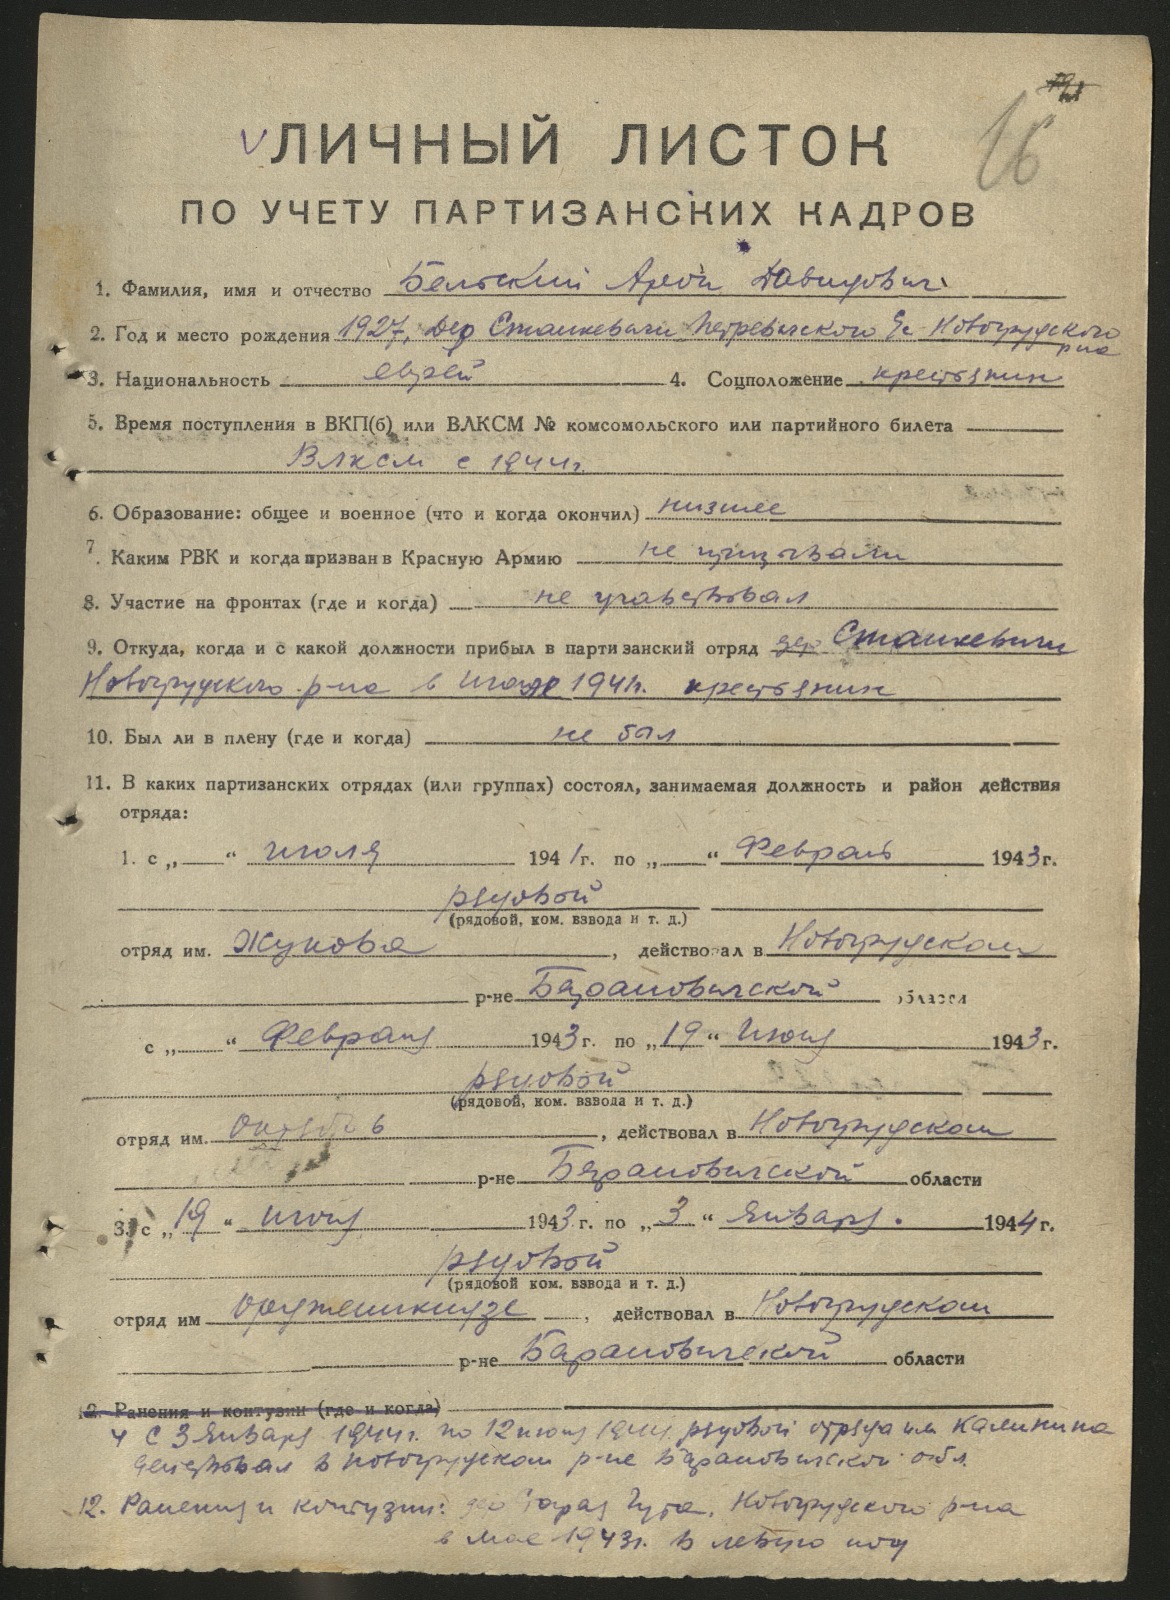 16
ЛИЧНЫЙ ЛИСТОК
ПО УЧЕТУ ПАРТИЗАНСКИХ КАДРОВ
1. Фамилия, имя и отчество Бельский Арон Давидович
2. Год и место рождения 1927, дер Станкевичи Петревичского с Новогрудского
р-на
3. Национальность еврей 4. Соцположение крестьянин
5. Время поступления в ВКП(б) или ВЛКСМ № комсомольского или партийного билета
ВЛКСМ с 1944г.
6. Образование: общее и военное (что и когда окончил) низшее
7. Каким РВК и когда призван в Красную Армию не призывали
8. Участие на фронтах (где и когда) не участвовал
9. Откуда, когда и с какой должности прибыл в партизанский отряд дер Станкевичи
Новогрудского р-на в июле 1941г. крестьянин
10. Был ли в плену (где и когда) не был
11. В каких партизанских отрядах (или группах) состоял, занимаемая должность и район действия
отряда:
1. с „ “ июля 1941г. по „ “ Февраль 1943г.
рядовой
(рядовой, ком. взвода и т. д.)
отряд им. Жукова, действовал в Новогрудском
р-не Барановичской области
с „ “ Февраля 1943г. по „19“ Июня 1943г.
рядовой
(рядовой, ком. взвода и т. д.)
отряд им. Октябрь, действовал в Новогрудском
р-не Барановичской области
3. с „19“ июня 1943г. по „3“ Января. 1944г.
рядовой
(рядовой ком. взвода и т. д.)
отряд им Орджоникидзе, действовал в Новогрудском
р-не Барановичской области
12. Ранения и контузии (где и когда)
4 С 3 Января 1944г. по 12 июля 1944г. рядовой отряда им Калинина
действовал в Новогрудском р-не Барановичской обл.
12. Ранения и контузии: дер Гута, Новогрудского р-на
в мае 1943г. в левую ногу